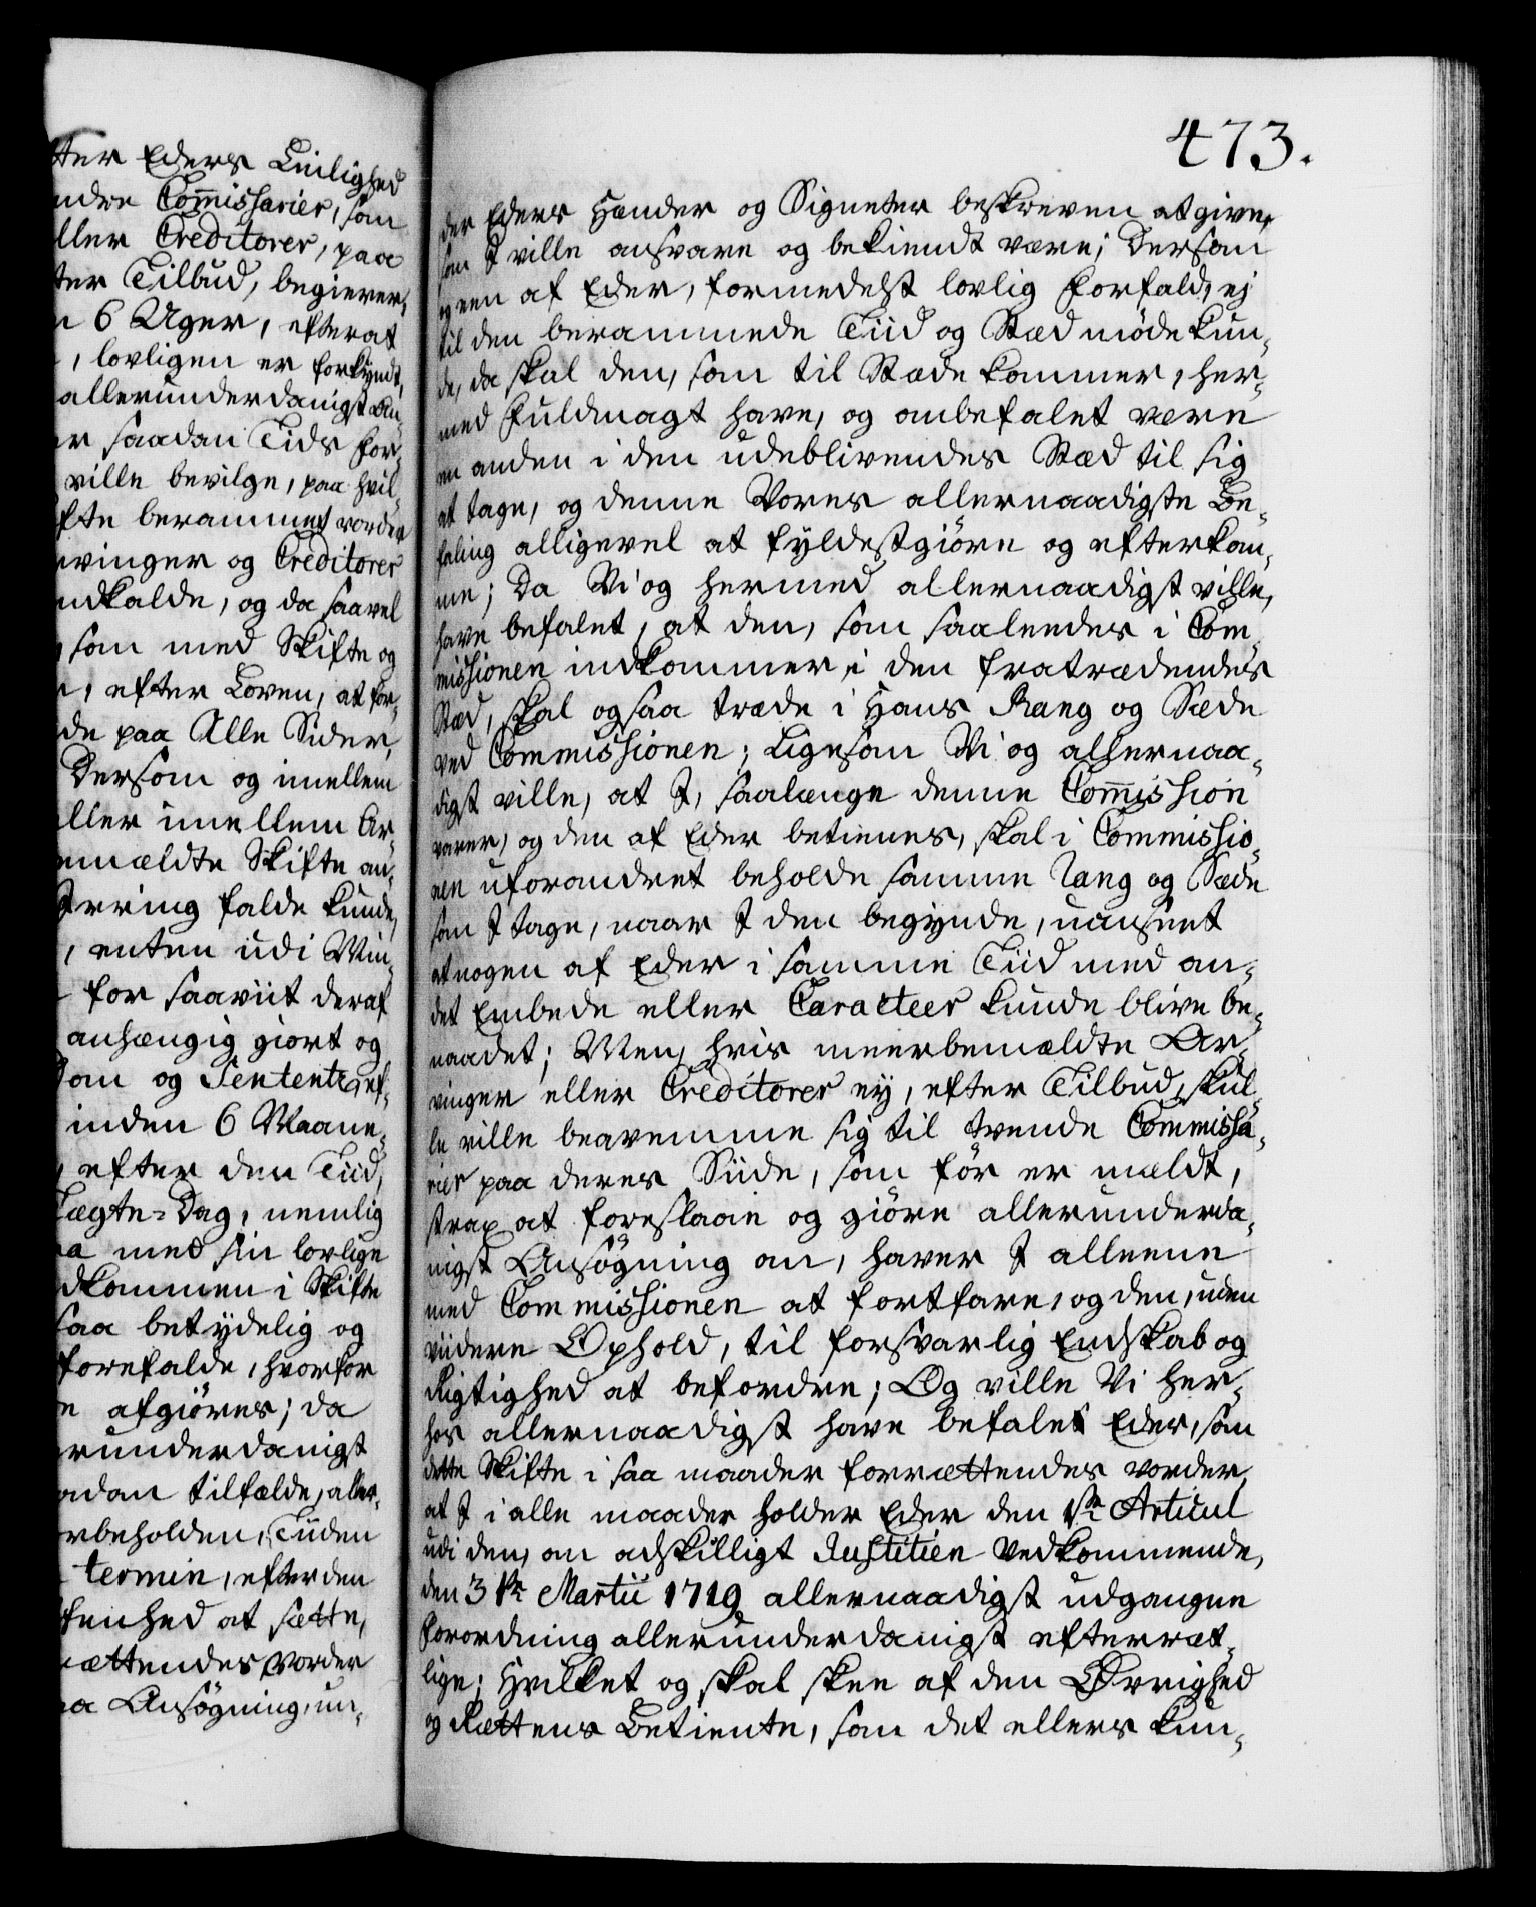 tter Eders Leilighed
ndre Com̅issarier, som
ller Creditorer, paa
ter Tilbud, begierer,
n 6 Uger, efterat
, lovligen er forkyndt,
allerunderdanigst An-
er saadan Tids For-
ville bevilge, paa hvil-
ifte berammet vorder
rvinger og Creditorer
indkalde, og da saavel
som med Skifte og
e, efter Loven, at for-
de paa Alle Sider,
Dersom og imellem
ller imellem Ar-
emældte Skifte an-
Irring falde kunde,
, enten udi Min-
for saaviit deraf
anhængig giort og
Dom og Sententz, ef-
inden 6 Maane-
, efter den Tiid,
Tægte-Dag, nemlig
a med sin lovlige
dkommen i Skifte
saa betydelig og
forefalde, hvorfor
e afgiøres; da
erunderdanigst
adan tilfælde, aller-
rbeholden, Tiiden
termin, efter den
ffenhed at sætte,
rættendes vorder
aa Ansøgning, un-
473.
der Eders Hænder og Signeter beskreven at give,
som I ville ansvare og bekiendt være; Dersom
og een af Eder, formedelst lovlig Forfald, ej
til den berammede Tiid og Stæd møde kun-
de, da skal den, som til Stæde kommer, her-
med Fuldmagt have, og anbefalet være
en anden i den udeblivendes Stæd til sig
at tage, og denne Vores allernaadigste Be-
faling alligevel at fyldestgiøre og efterkom-
me; Da Vi og hermed allernaadigst ville,
have befalet, at den, som saaleedes i Com-
missionen indkommer, i den fratrædendes
Stæd, skal ogsaa træde i Hans Rang og Sæde
ved Commissionen; Ligesom Vi og allernaa-
digst ville, at I, saalænge denne Com̅ission
varer, og den af Eder betienes, skal i Commissio-
nen uforandret beholde samme Rang og Sæde
som I tage, naar I den begynde, uanseet
at nogen af Eder i samme Tiid med an-
det Embede eller Caracteer kunde blive be-
naadet; Men, hvis meerbemældte Ar-
vinger eller Creditorer ey, efter Tilbud, skul-
le ville beqvemme sig til trende Commissa-
rier paa deres Siide, som før er meldt,
strax at foreslaae og giøre allerunderda-
nigst Ansøgning om, haver I alleene
med Commissionen at fortfare, og den, uden
viidere Ophold, til forsvarlig Endskab og
Rigtighed at befordre; Og ville Vi her-
hos allernaadigst have befalet Eder, som
dette Skifte i saa maader forrættendes vorder,
at I i alle maader holder Eder den 1ste Articul
udi den, om adskilligt Justitien Vedkommende,
den 31te Martii 1719 allernaadigst udgangne
Forordning allerunderdanigst efterret-
lige; Hvilket og skal skee af den Øvrighed
og Rættens Betiente, som det ellers kun-